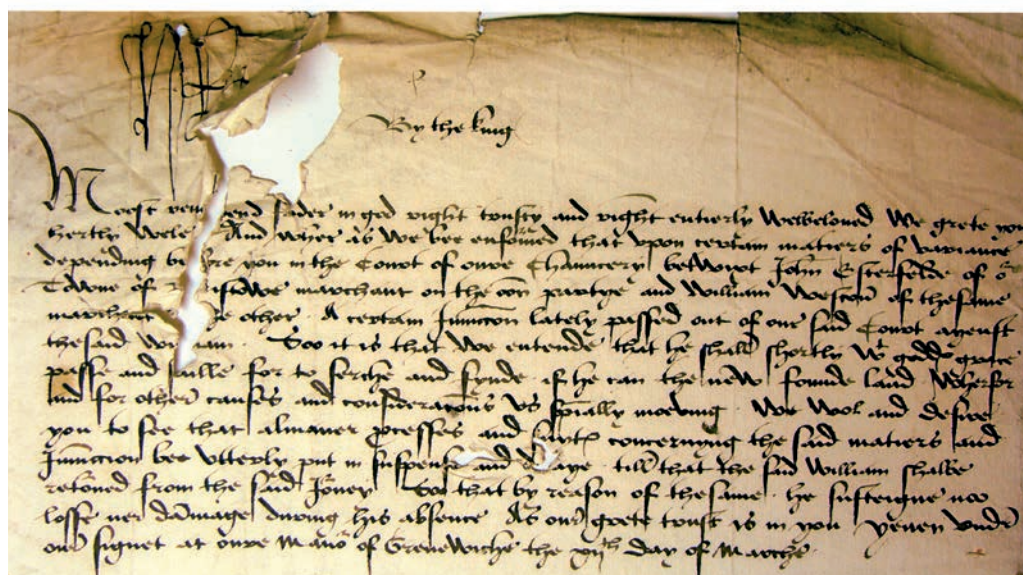 By the king
Moost rev end fader in god right trusty and right entierly welbeloued We grete you
hertly wele And wher as we bee enformed that vpon certain matiers of variaunce
depending be re you in the Court of oure Chauncery betwixt John Esterfelde of oure
Towne of istowe marchant on the oon partye and William Weston of thesame
marchant other . A certain Iniunccion lately passed out of our said Court ayenst
thesaid Wi iam . Soo it is that we entende that he shall shortly wt goddes grace
passe and saille for to serche and fynde if he can the new founde land Wherfor
and for other causes and consideracions vs specially moeving . We wol and desire
you to see that almaner processes and suytes concernyng the said matiers and
Iniunccion bee vtterly put in suspense and delaye till that the said William shalbe
retorned from the said Iorney Soo that by reason of thesame . he susteigne noo
losse ner dammage during his absence As our grete trust is in you Yeuen vnder
our signet at oure Manor of Grenewiche the xijth day of Marche .